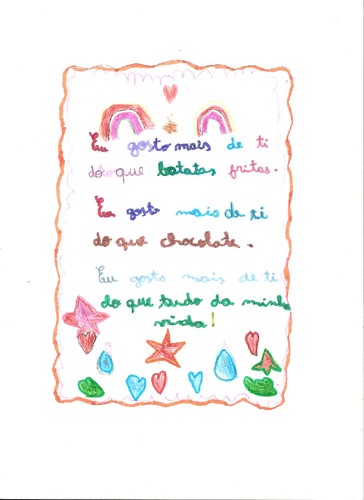 Eu gosto mais de ti
do que batatas fritas.
Eu gosto mais de ti
do que chocolate.
Eu gosto mais de ti
do que tudo da minha
vida!